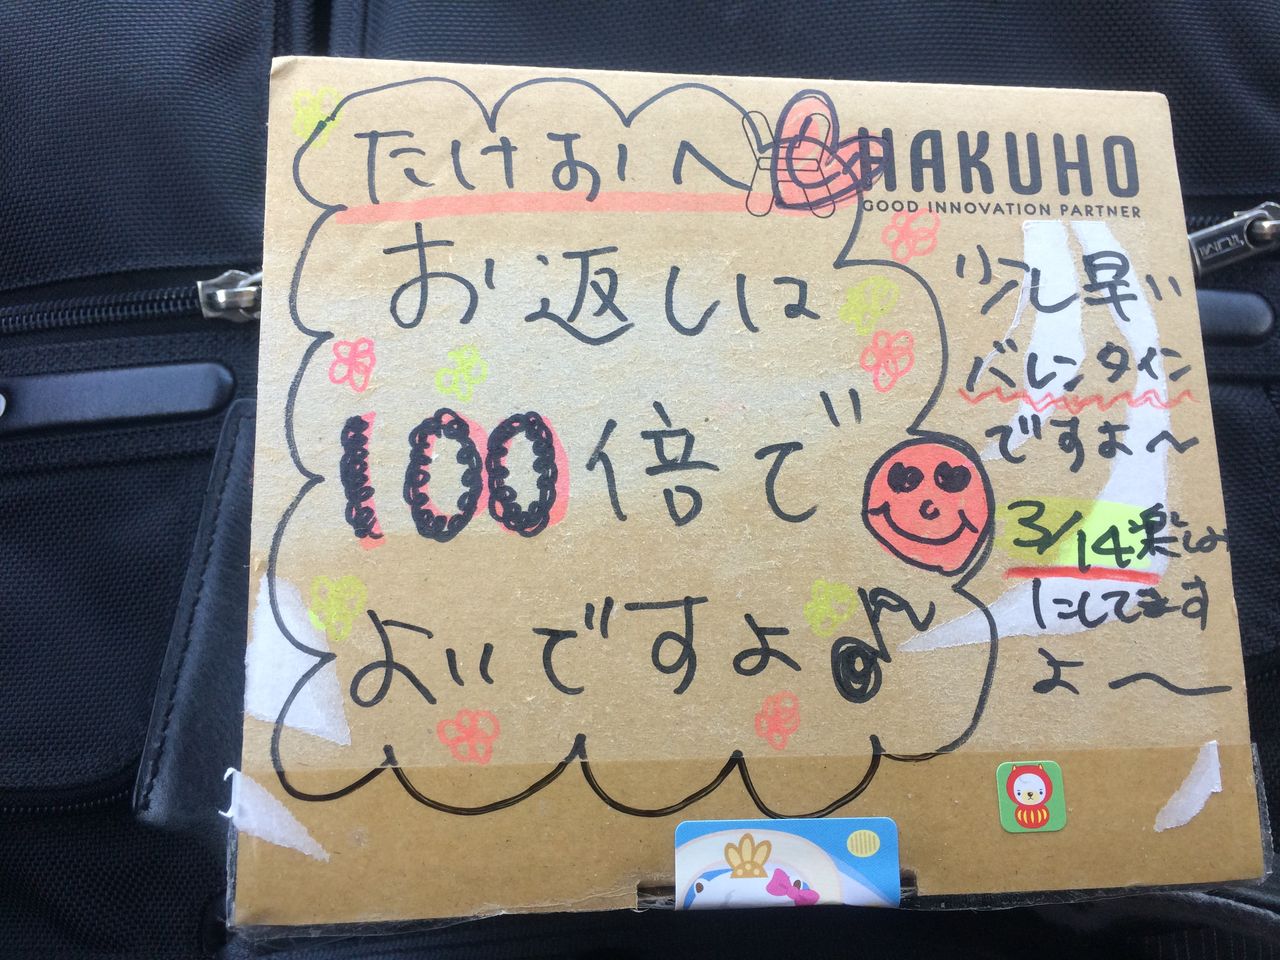 たけおへ
HAKUHO
GOOD INNOVATION PARTNER
お返しは
100倍で
よいですよ♪
少し早い
バレンタイン
ですよ～
3/14楽しみ
にしてます
よ～
TUMI